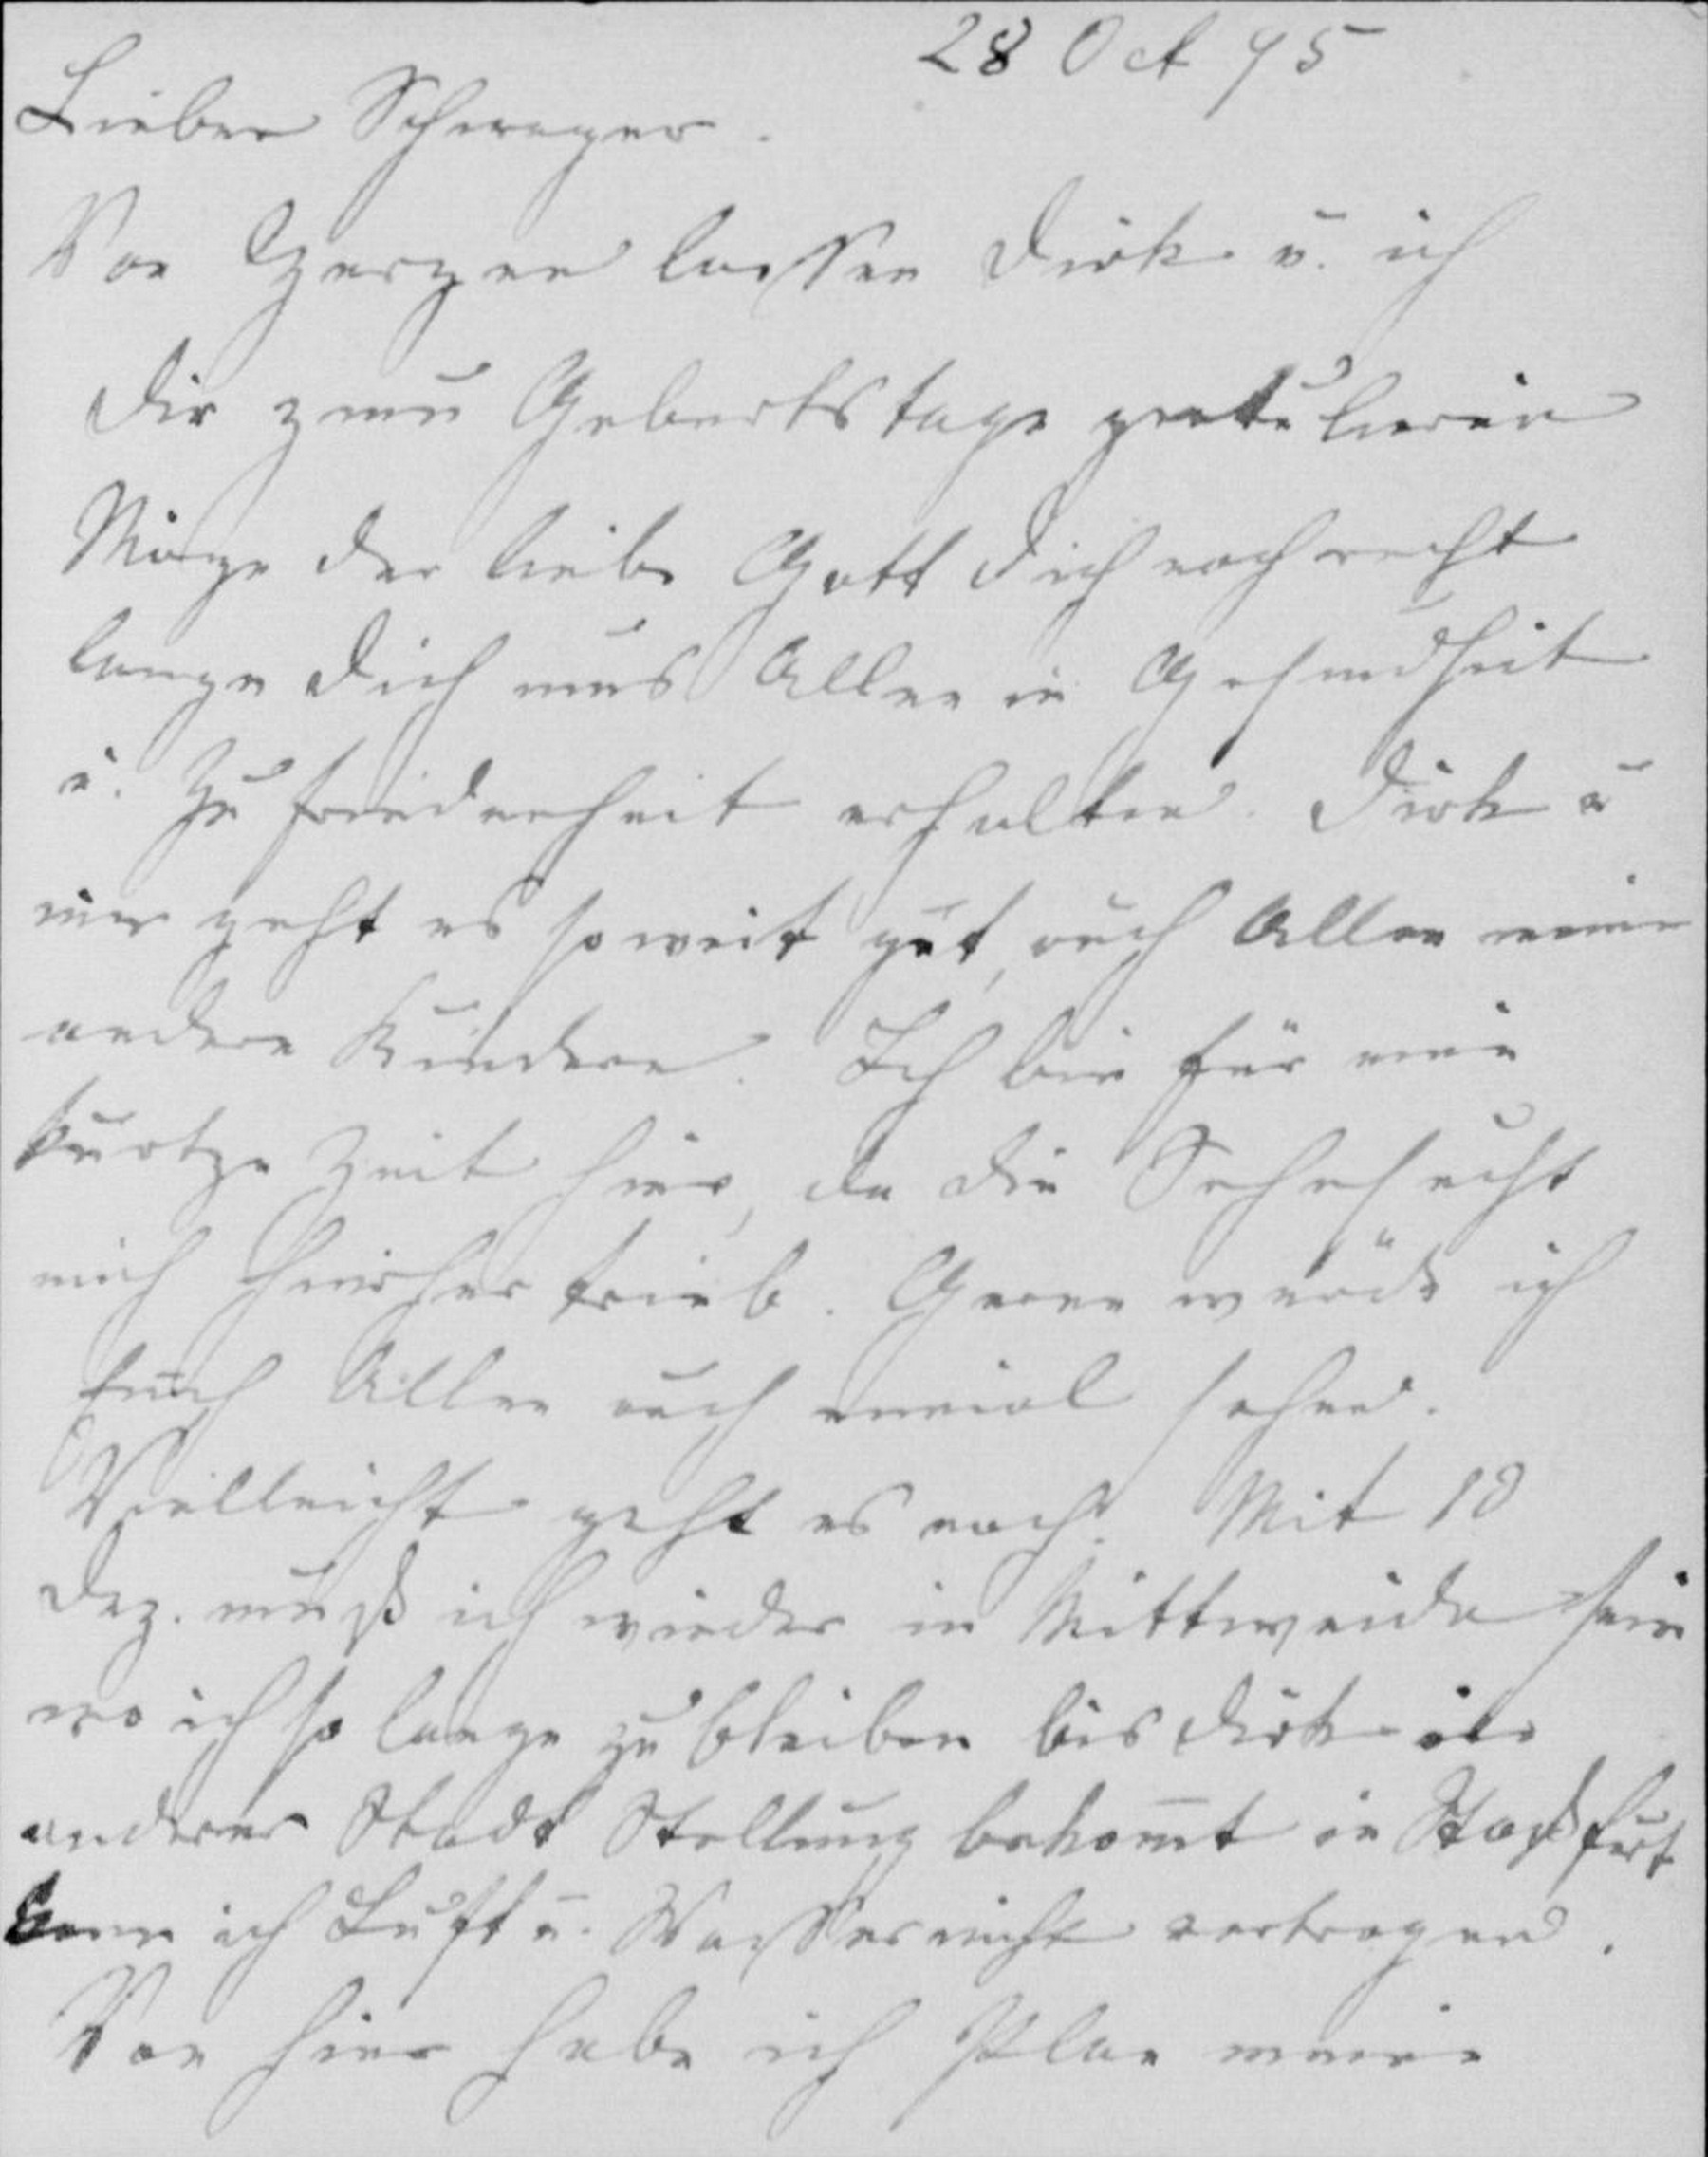 28 Oct 95
Lieber Schwager.
Von Herzen lassen Dirk u. ich
Dir zum Geburtstage gratulieren
Möge der liebe Gott Dich noch recht
lange Dich uns Allen in Gesundheit
u. Zufriedenheit erhalten. Dirk u
mir geht es soweit gut, auch Allen meine
andere Kindern. Ich bin für eine
kurtze Zeit hier, da die Sehnsucht
mich hierher trieb. Gerne würde ich
Euch Allen auch einmal sehen.
Vielleicht geht es noch. Mit 10
Dez. muß ich wieder in Mittweida sein
wo ich so lange zu bleiben bis Dirk in
anderer Stadt Stellung bekomt in Staßfurt
kann ich Luft u. Wasser nicht vertragen.
Von hier habe ich Plan meine